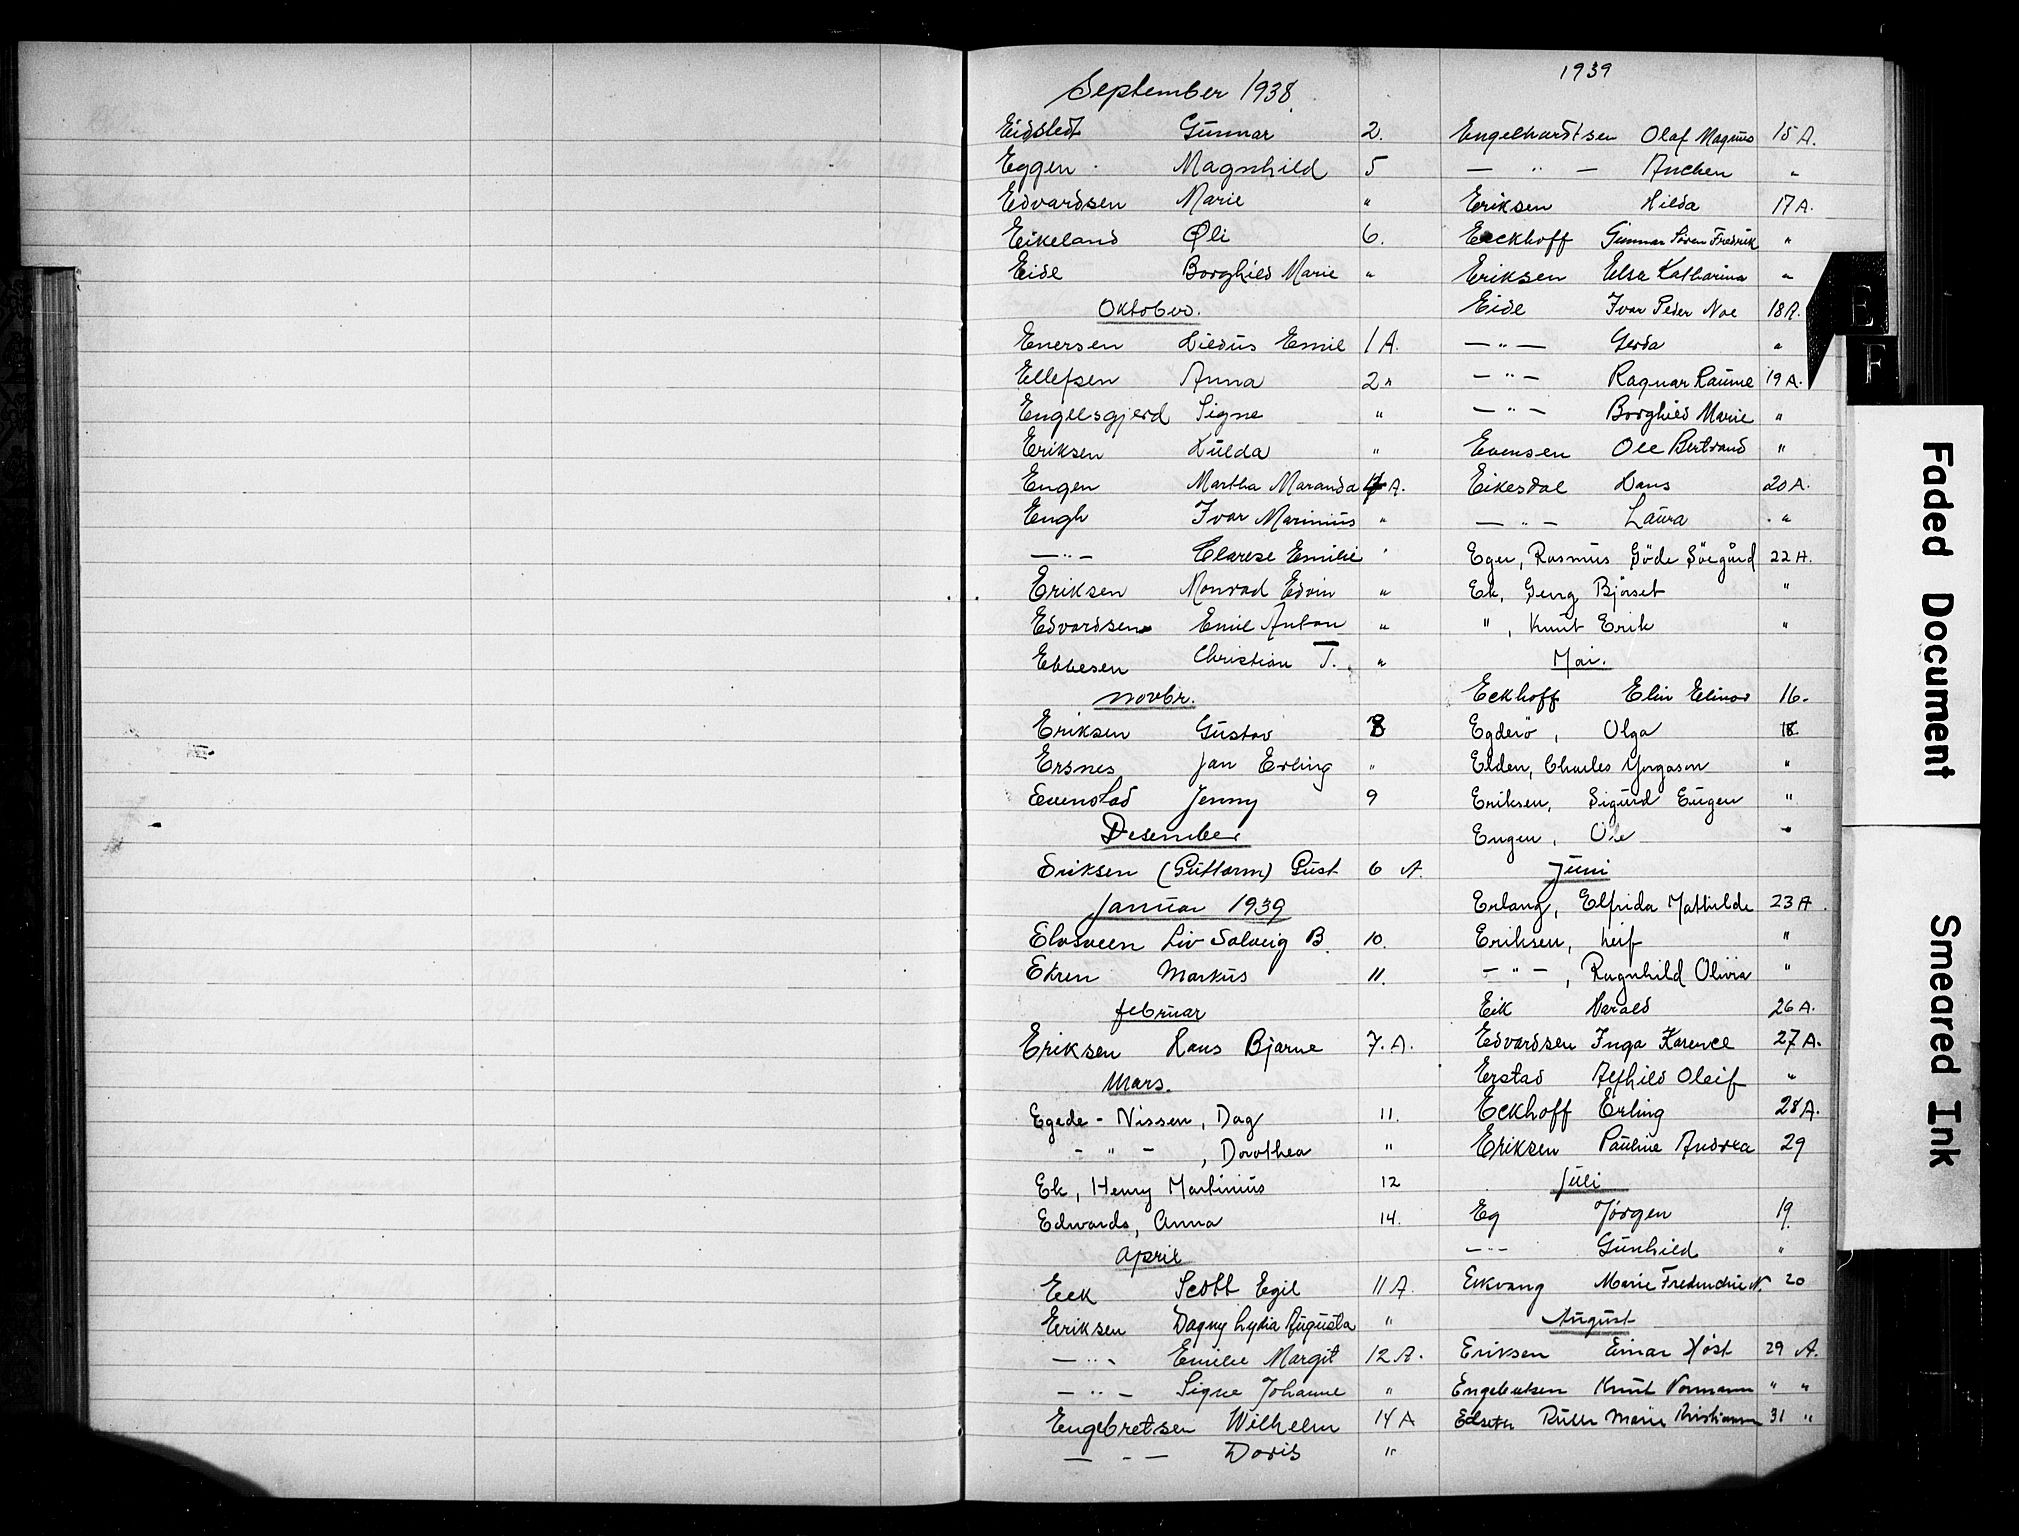 September 1938
Eidstedt Gunnar 2.
Eggen Magnhild 5
Edvardsen Marie "
Eikeland Øli 6.
Eide Borghild Marie "
Oktober.
Enersen Lidius Emil 1 A.
Ellefsen Anna 2 "
Engelsgjerd Signe "
Eriksen Hulda "
Engen Martha Maranda A.
Engh Ivar Marinius "
— " — Clarese Emilie "
Eriksen Monrad Edvin "
Edvardsen Emil Anton "
Ebbesen Christian T. "
Novbr.
Eriksen Gustav 8
Ersnes Jan Erling "
Evenstad Jenny 9
Desember
Eriksen (Guttorm) Gust 6 A.
Januar 1939
Elvsveen Liv Solveig B. 10.
Ekren Markus 11.
februar
Eriksen Hans Bjarne 7. A.
Mars.
Egede-Nissen, Dag 11.
- " - , Dorothea "
Ek, Henry Martinius 12
Edwards, Anna 14.
April
Eek Scott Egil 11 A.
Eriksen Dagny Lydia Augusta "
— " — Emilie Margit 12 A.
— " — Signe Johanne "
Engebretsen Wilhelm 14 A
— " — Doris "
1939
Engelhardtsen Olaf Magnus 15 A.
— " — Anchen "
Eriksen Hilda 17 A.
Eeckhoff Gunnar Søren Fredrik "
Eriksen Elsa Katharina "
Eide Ivar Peder Noe 18 A.
— " — Gerda "
— " — Ragnar Raume 19 A.
— " — Borghild Marie "
Evensen Ole Bertrand "
Eikesdal Hans 20 A.
— " — Laura "
Eger, Rasmus Gøde Søegård 22 A.
Ek, Georg Bjørset "
" , Knut Erik "
Mai.
Eckhoff Elin Elinor 16.
Egderø, Olga 18.
Elden, Charles Yorgason "
Eriksen, Sigurd Eugen "
Engen, Ole "
Juni
Erlang, Elfrida Mathilde 23 A.
Eriksen, Leif "
— " — , Ragnhild Olivia "
Eik Harald 26 A.
Edvardsen Inga Karence 27 A.
Erstad Alfhild Oleif "
Eckhoff Erling 28 A.
Eriksen Pauline Andrea 29
Juli
Eg Jørgen 19.
— " — Gunhild "
Eikvang Marie Fredrendrie N. 20
August
Eriksen Einar Høst 29 A.
Engebretsen Knut Normann " "
Elseth Ruth Marie Kristianne 31 "
E
F
Faded Document
Smeared Ink